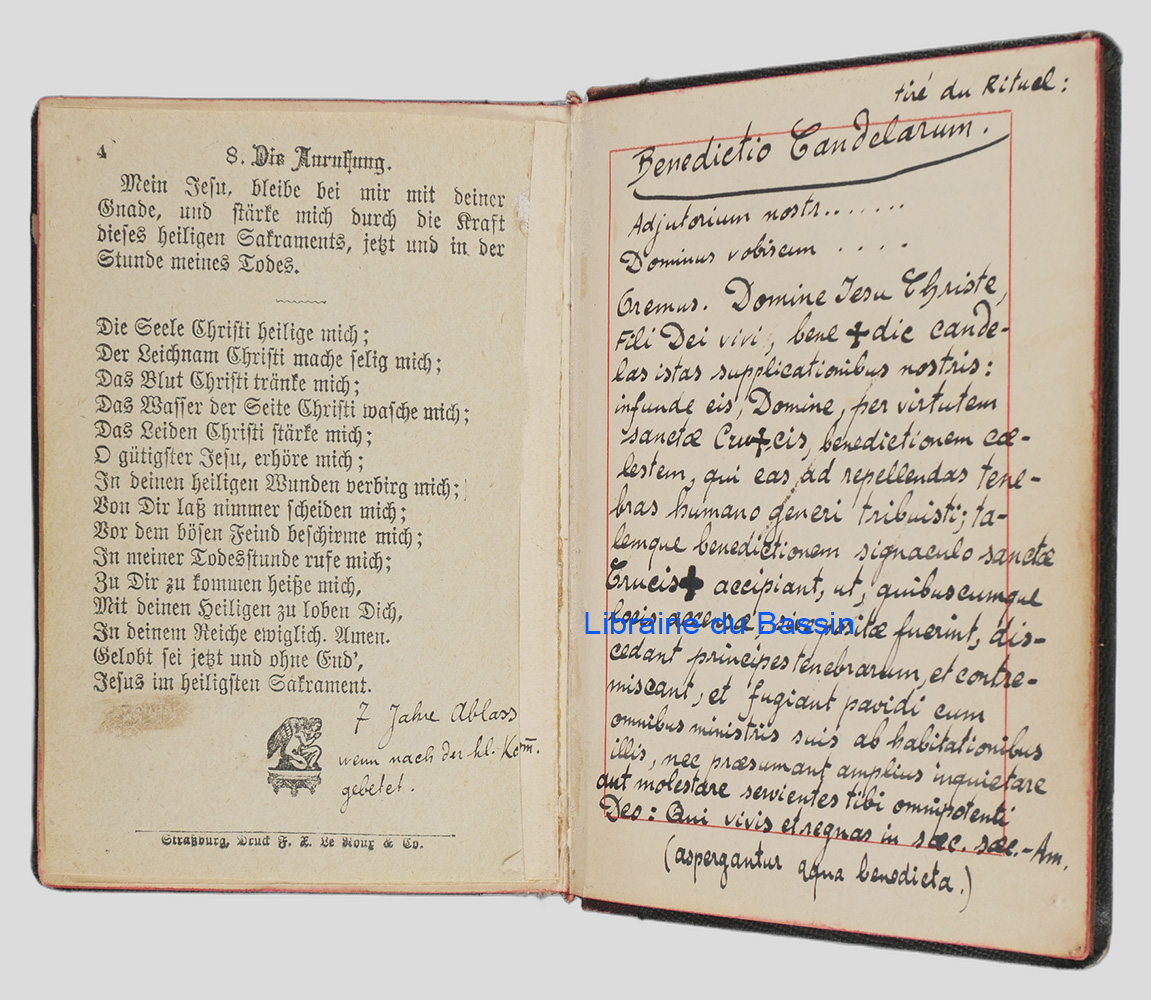 4
8. Die Anrufung.
Mein Jesu, bleibe bei mir mit deiner
Gnade, und stärke mich durch die Kraft
dieses heiligen Sakraments, jetzt und in der
Stunde meines Todes.
Die Seele Christi heilige mich;
Der Leichnam Christi mache selig mich;
Das Blut Christi tränke mich;
Das Wasser der Seite Christi wasche mich;
Das Leiden Christi stärke mich;
O gütigster Jesu, erhöre mich;
In deinen heiligen Wunden verbirg mich;
Von Dir laß nimmer scheiden mich;
Vor dem bösen Feind beschirme mich;
In meiner Todesstunde rufe mich;
Zu Dir zu kommen heiße mich,
Mit deinen Heiligen zu loben Dich,
In deinem Reiche ewiglich. Amen.
Gelobt sei jetzt und ohne End',
Jesus im heiligsten Sakrament.
7 Jahre Ablass
wenn nach der hl. Kom̄.
gebetet.
Straßburg, Druck F. X. Le Roux & Co.
tiré du Rituel:
Benedictio Candelarum.
Adjutorium nostr.......
Dominus vobiscum ....
Oremus. Domine Jesu Christe,
Fili Dei vivi, bene✝dic cande-
las istas supplicationibus nostris:
infunde eis, Domine, per virtutem
sanctæ Cru✝cis, benedictionem cœ-
lestem, qui eas ad repellendas tene-
bras humano generi tribuisti; ta-
lemque benedictionem signaculo sanctæ
Crucis✝ accipiant, ut, quibuscumque
locis accensæ, sive positæ fuerint, dis-
Librairie du Bassin
cedant principes tenebrarum, et contre-
miscant, et fugiant pavidi cum
omnibus ministris suis ab habitationibus
illis, nec præsumant amplius inquietare
aut molestare servientes tibi omnipotenti
Deo: Qui vivis et regnas in sæc. sæc.-Am.
(aspergantur aqua benedicta.)